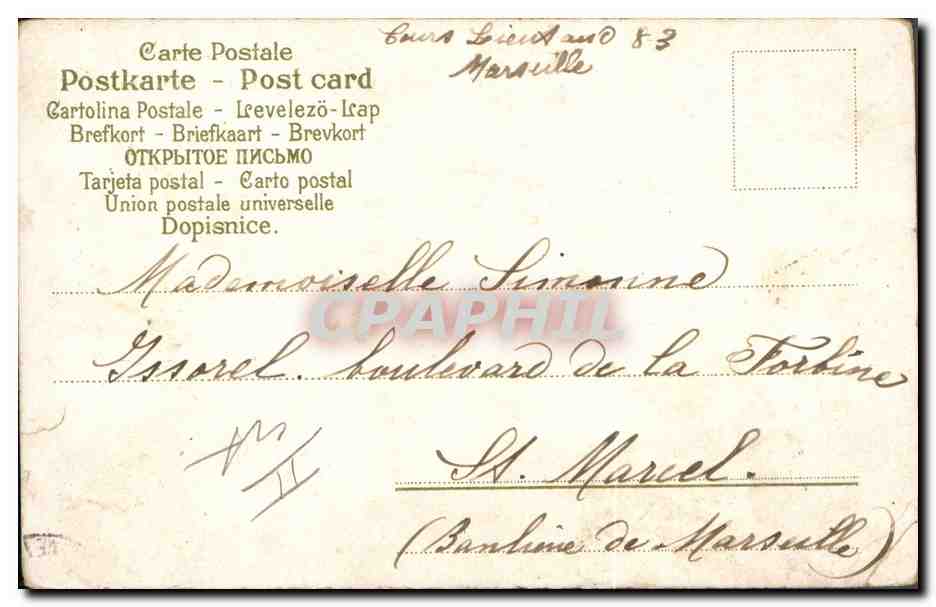 Carte Postale
Postkarte - Post card
Cartolina Postale - Levelezö-Lap
Brefkort - Briefkaart - Brevkort
ОТКРЫТОЕ ПИСЬМО
Tarjeta postal - Carto postal
Union postale universelle
Dopisnice.
Cours Lieutaud 83
Marseille
Mademoiselle Simonne
CPAPHIL
Issorel. boulevard de la Forbine
St. Marcel.
(Banlieue de Marseille)
II